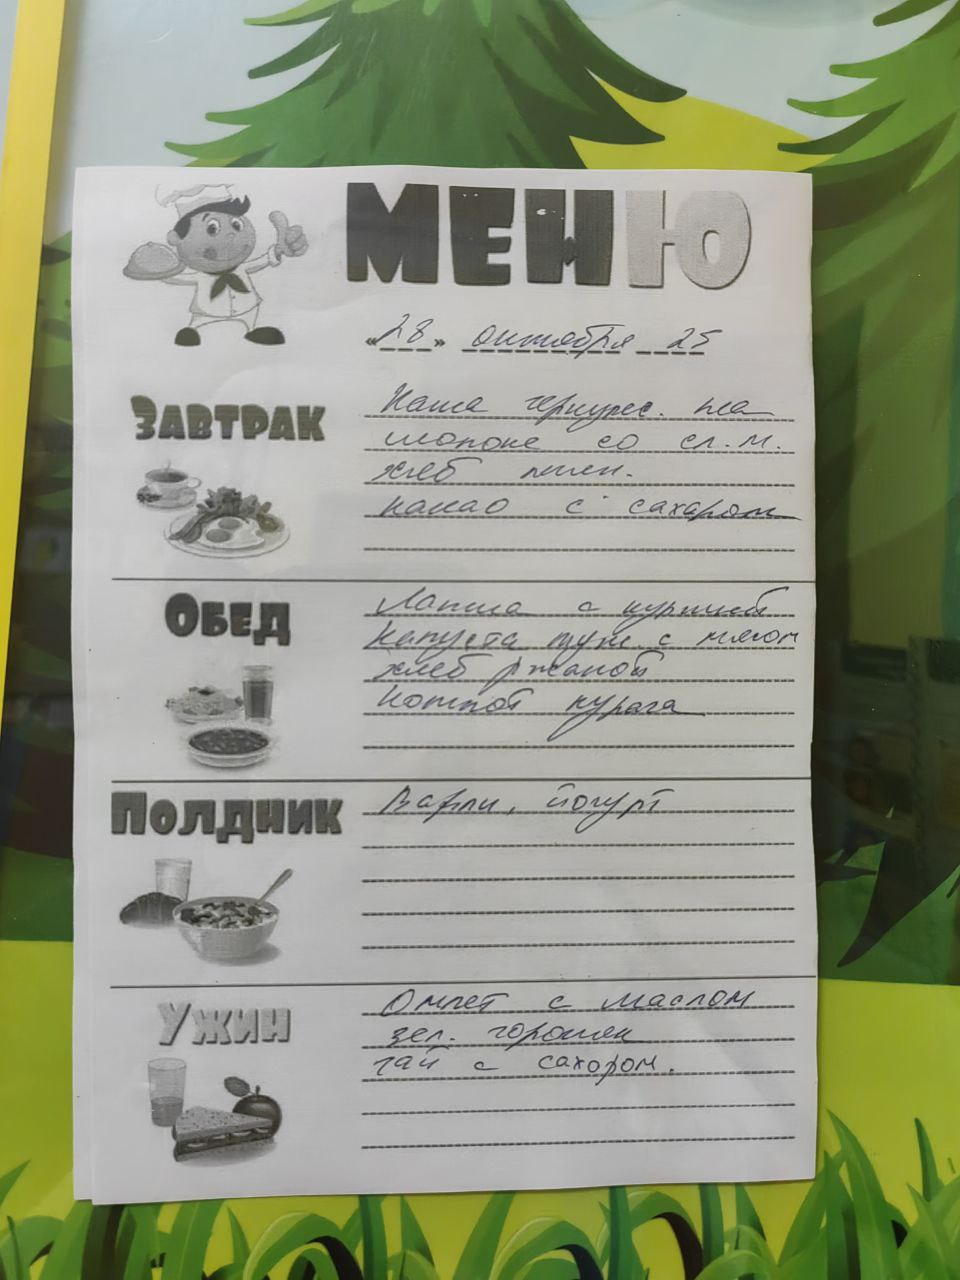 МЕНЮ
«28» октября 25
ЗАВТРАК
Каша геркулес. на
молоке со сл. м.
хлеб пшен.
какао с сахаром
ОБЕД
Лапша с курицей
капуста туш. с мясом
хлеб ржаной
компот курага
ПОЛДНИК
Вафли, йогурт
УЖИН
Омлет с маслом
зел. горошек
чай с сахором.